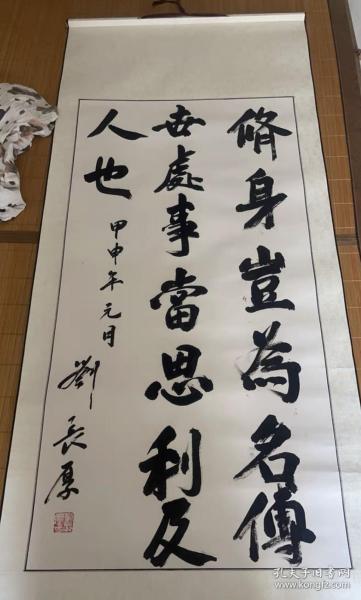 脩身豈為名傳
世處事當思利及
人也
甲申年元月
劉長厚
孔夫子旧书网